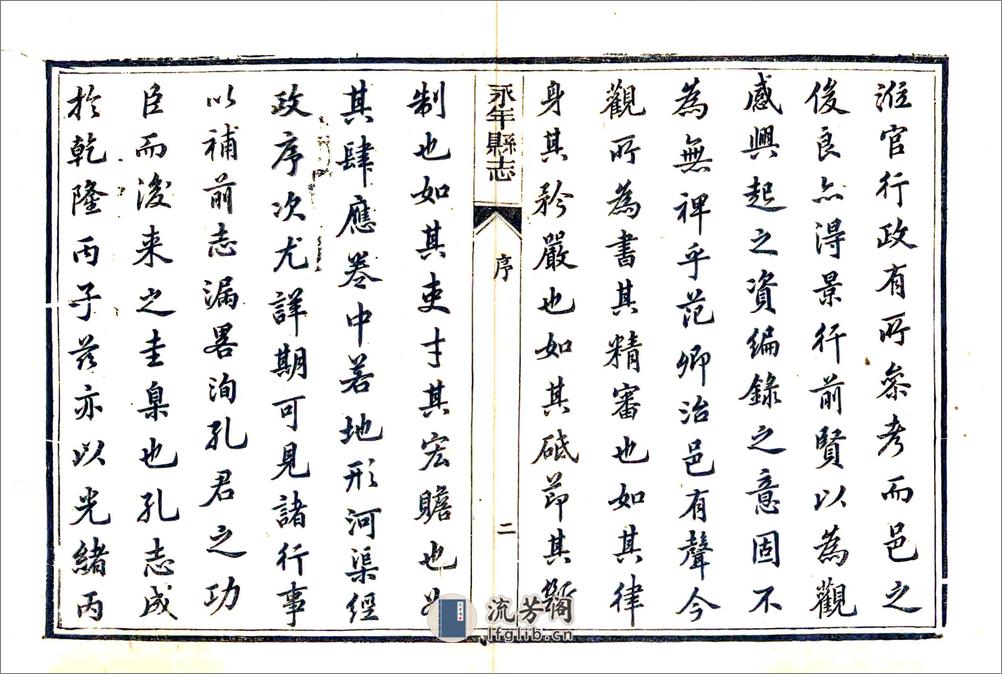 涖官行政有所叅考而邑之
俊良亦得景行前賢以為觀
感興起之資編錄之意固不
為無裨乎范卿治邑有聲今
觀所為書其精審也如其律
身其矜嚴也如其砥節其斷
永年縣志 序 二
制也如其吏才其宏贍也如
其肆應卷中若地形河渠經
政序次尤詳期可見諸行事
以補前志漏畧洵孔君之功
臣而後来之圭臬也孔志成
於乾隆丙子茲亦以光緒丙
流芳阁
lfglib.cn